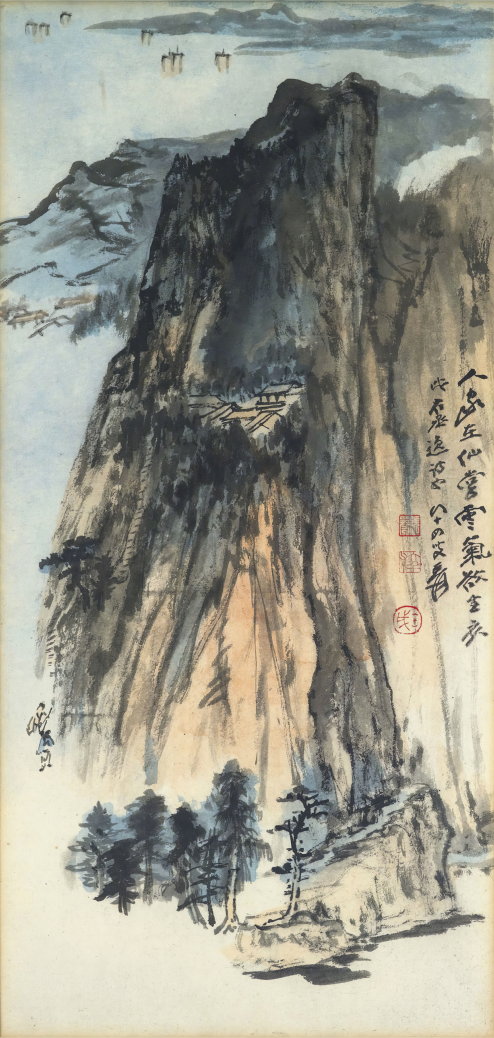 人家在仙掌雲氣欲生衣
此石濤逸詩也八十四叟爰